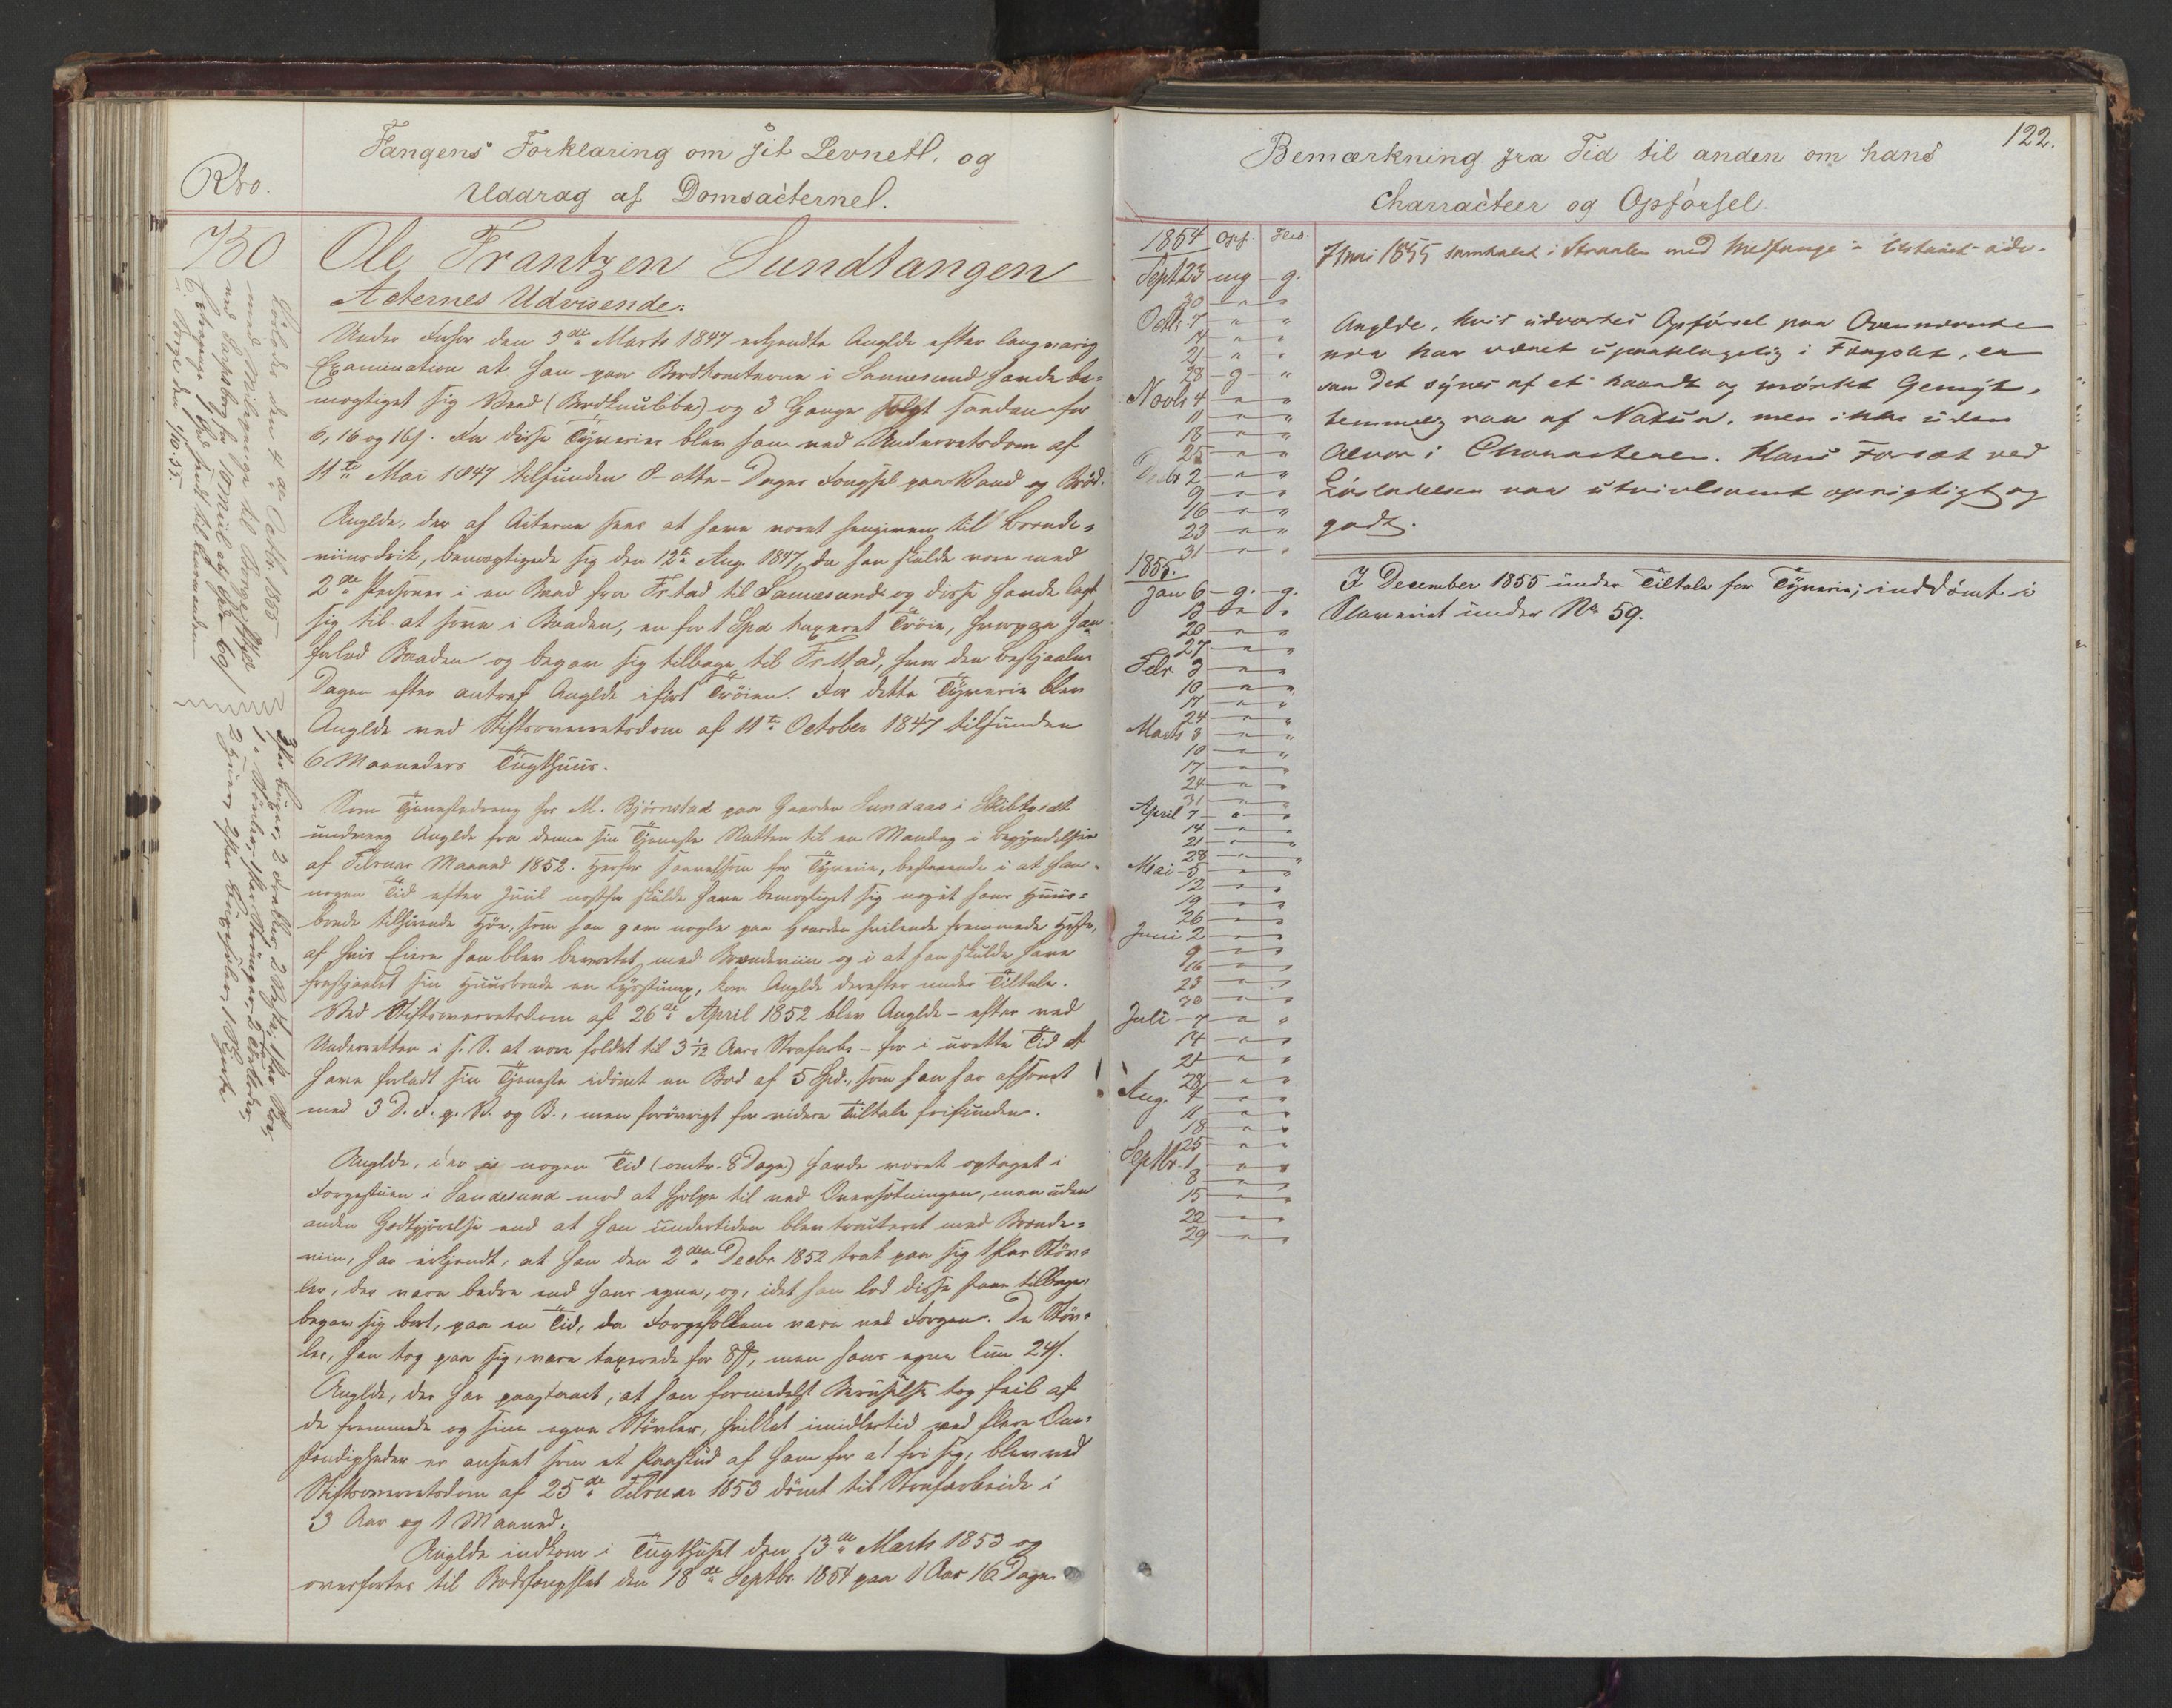 Rto.
Fangens Forklaring om sit Levnetl. og
Uddrag af Domsacternel.
750
Ole Frantzen Sundtangen
Acternes Udvisende:
Under Forhør den 3de Marts 1847 erkjendte Anglde efter langvarig
Examination at han paa Bordtomterne i Sannesund havde be=
mægtiget sig Veed (Bordknubbe) og 3 Gange solgt saadan for
6, 16 og 16 s. For disse Tyverier blev han ved Underretsdom af
11te Mai 1847 tilfunden 8 - otte - Dages Fængsel paa Vand og Brød.
Anglde, der af Acterne sees at have været hengiven til Brænde=
viinsdrik, bemægtigede sig den 12te Aug. 1847, da han skulde roe med
2de Personer i en Baad fra Fr.stad til Sannesund og disse havde lagt
sig til at sove i Baaden, en for 1 Spd taxeret Trøie, hvorpaa han
forlod Baaden og begav sig tilbage til Fr.stad, hvor den Bestjaalne
Dagen efter antraf Anglde iført Trøien. For dette Tyverie blev
Anglde ved Stiftsoverretsdom af 11te October 1847 tilfunden
6 Maaneders Tugthuus.
Som Tjenestedreng hos M. Bjørnstad paa Gaarden Sundaas i Skibtvedt
undveeg Anglde fra denne sin Tjeneste Natten til en Mandag i Begyndelsen
af Februar Maaned 1852. Herfor saavelsom for Tyverie, bestaaende i at han
nogen Tid efter Juul næstfør skulde have bemægtiget sig noget hans Huus=
bonde tilhørende Høe, som han gav nogle paa Gaarden hvilende fremmede Heste,
af hvis Eiere han blev beværtet med Brændeviin og i at han skulde have
frastjaalet sin Huusbonde en Lysstump, kom Anglde derefter under Tiltale.
Ved Stiftsoverretsdom af 26de April 1852 blev Anglde - efter ved
Underretten i s. S. at være fældet til 3 1/12 Aars Strafarb. - for i urette Tid at
have forladt sin Tjeneste idømt en Bod af 5 Spd., som han har afsonet
med 3 D. F. p. V. og B., men forøvrigt for videre Tiltale frifunden.
Anglde, der i nogen Tid (omtr. 8 Dage) havde været optaget i
Færgestuen i Sandesund mod at hjelpe til ved Oversætningen, men uden
anden Godtgjørelse end at han undertiden blev tracteret med Brænde=
viin, har erkjendt, at han den 2den Decbr 1852 trak paa sig 1 Par Støv=
ler, der vare bedre end hans egne, og, idet han lod disse staae tilbage,
begav sig bort, paa en Tid, da Færgefolkene vare ved Færgen. De Støv=
ler, han tog paa sig, vare taxerede for 8 s, men hans egne kun 24 s.
Anglde, der har paastaaet, at han formedelst Beruselse tog feil af
de fremmede og sine egne Støvler, hvilket imidlertid ved flere Om=
stændigheder er anseet som et Paaskud af ham for at fri sig, blev ved
Stiftsoverretsdom af 25de Februar 1853 dømt til Strafarbeide i
3 Aar og 1 Maaned.
Anglde indkom i Tugthuset den 13de Marts 1853 og
overførtes til Bodsfængslet den 18de Septbr. 1854 paa 1 Aar 16 Dage.
Løsladt den 4de Octbr. 1855
122.
Bemærkning fra Tid til anden om hans
Charracteer og Opførsel.
1854 Opf. Flid.
Sept 23 mg g.
30 " "
Octbr. 7 " "
14 " "
21 " "
28 g "
Novbr 4 " "
11 " "
18 " "
25 " "
Decbr 2 " "
9 " "
16 " "
23 " "
31 " "
1855.
Jan 6 g. g.
13 " "
20 " "
27 " "
Febr. 3 " "
10 " "
17 " "
24 " "
Marts 3 " "
10 " "
17 " "
24 " "
31 " "
April 7 " "
14 " "
21 " "
28 " "
Mai 5 " "
12 " "
19 " "
26 " "
Juni 2 " "
9 " "
16 " "
23 " "
30 " "
Juli 7 " "
14 " "
21 " "
28 " "
Aug. 4 " "
11 " "
18 " "
25 " "
Septbr. 1 " "
8 " "
15 " "
22 " "
29 " "
Anglde, hvis udvortes Opførsel paa Overnævnte
nær har været upaaklagelig i Fængslet, er
som det synes af et haardt og mørkt Gemyt,
temmelig raa af Natur, men ikke uden
Alvor i Characteren. Hans Forsæt ved
Løsladelsen var utvivlsomt oprigtigt og
godt.
I December 1855 under Tiltale for Tyverie; inddømt i
Slaveriet under No 59.